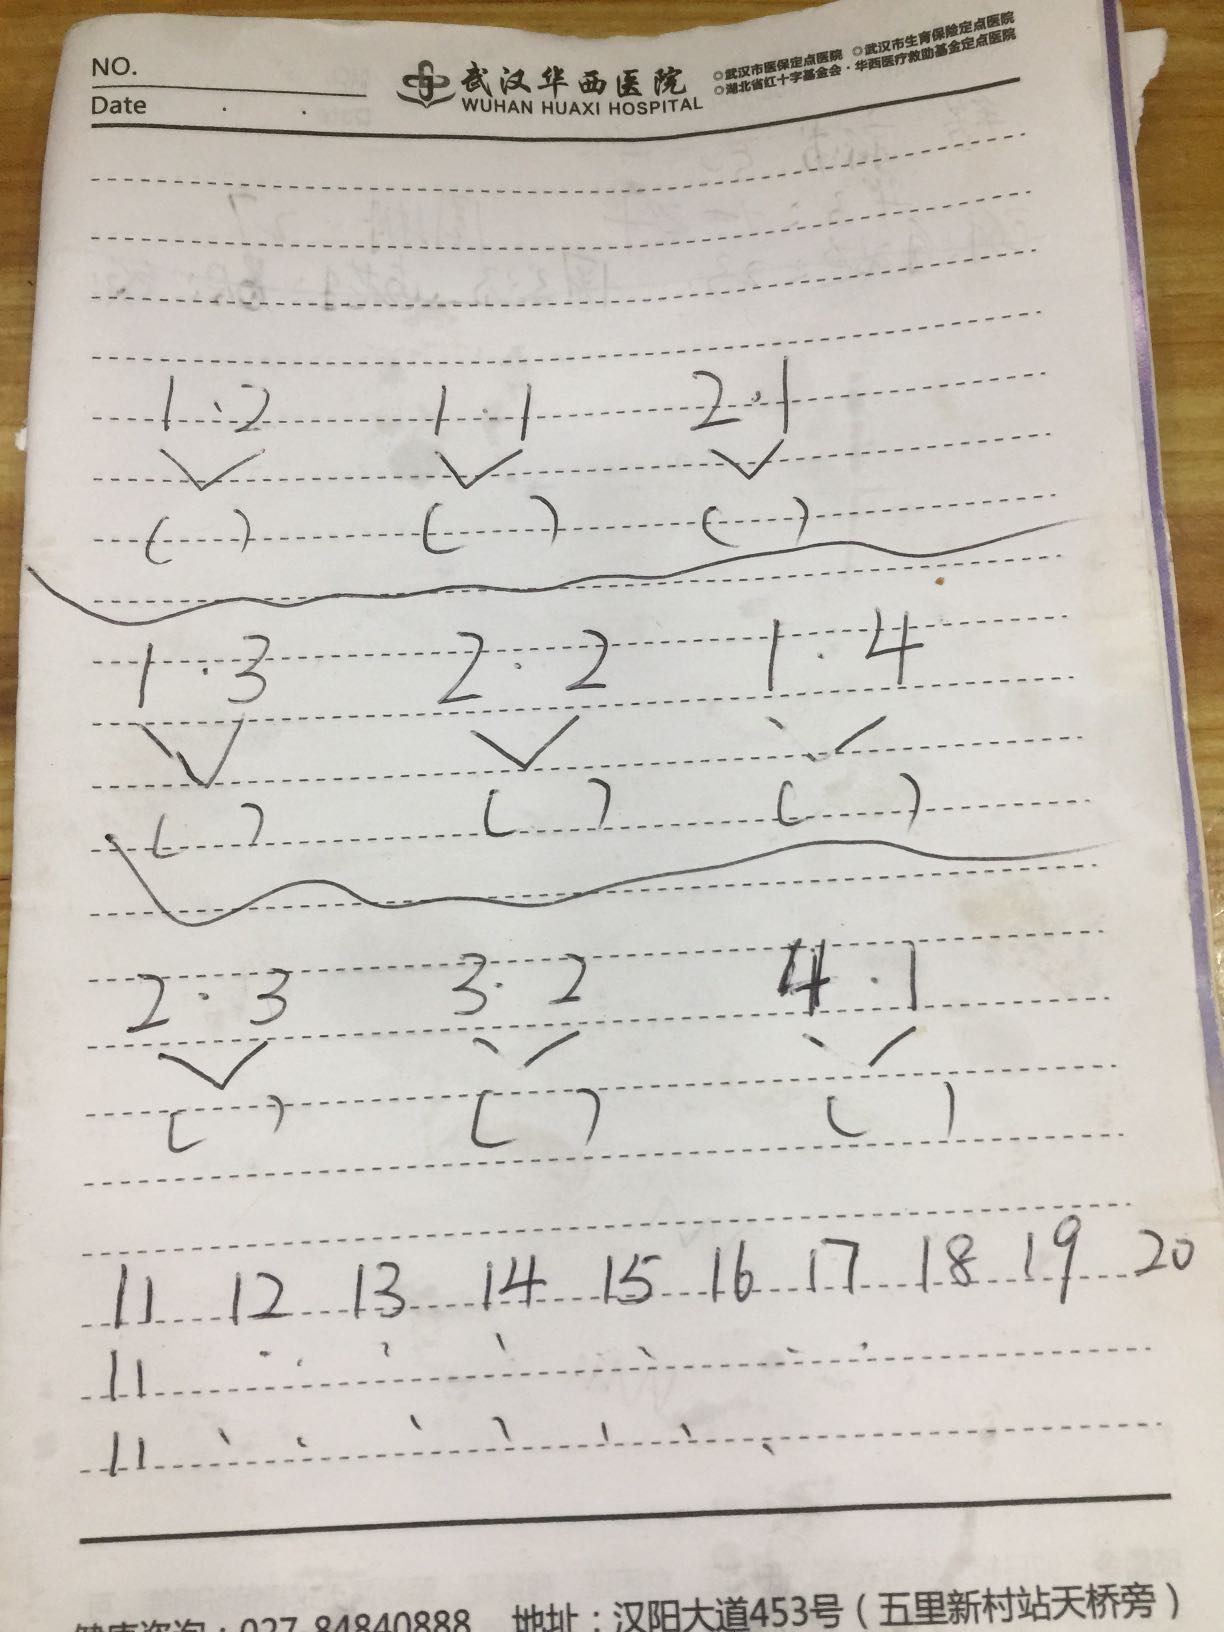 NO.
武汉华西医院 ○武汉市医保定点医院 ○武汉市生育保险定点医院
Date WUHAN HUAXI HOSPITAL ○湖北省红十字基金会·华西医疗救助基金定点医院
1 . 2 1 . 1 2 . 1
( ) ( ) ( )
1 . 3 2 . 2 1 . 4
( ) ( ) ( )
2 . 3 3 . 2 4 . 1
( ) ( ) ( )
11 12 13 14 15 16 17 18 19 20
11
11
健康咨询：027-84840888 地址：汉阳大道453号（五里新村站天桥旁）